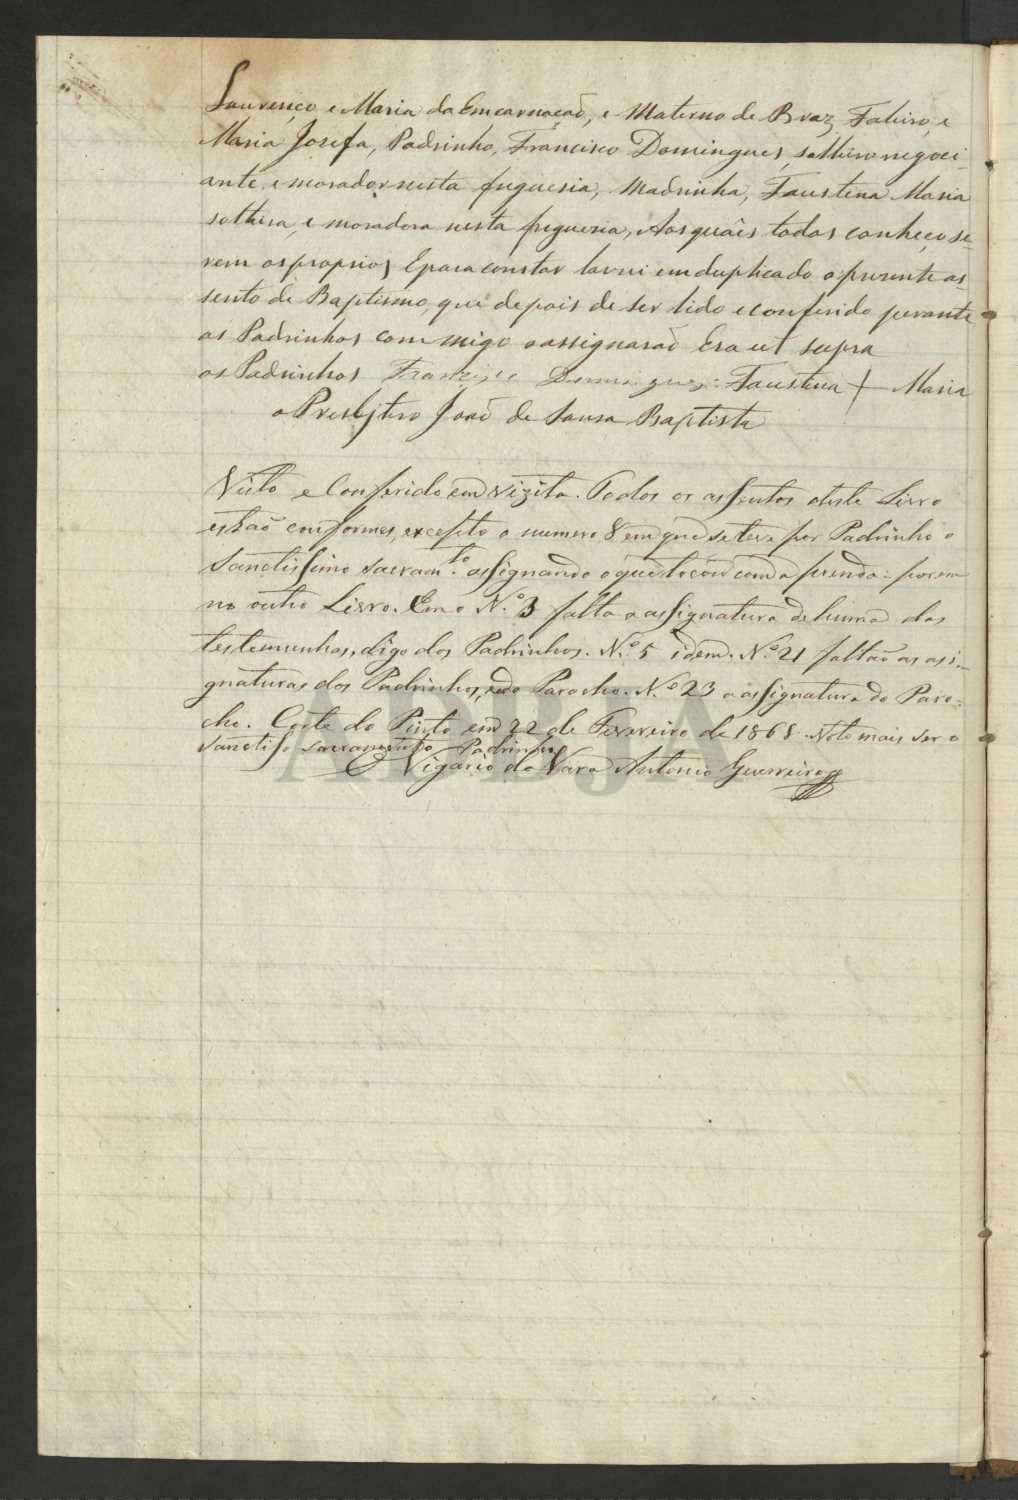 Lourenço e Maria da Emcarnação, e Materno de Braz Faleiro, e
Maria Josefa, Padrinho, Francisco Domingues, solteiro negoci-
ante, e morador nesta freguesia, Madrinha, Faustina Maria
solteira, e moradora nesta freguesia, Aos quáes todos conheço se-
rem os proprios E para constar lavrei em duplicado o presente as-
sento de Baptismo, que depois de ser lido e conferido perante
os Padrinhos com migo o assignaraõ Era ut supra
os Padrinhos Francisco Domingues Faustina + Maria
o Presbjtero Joaõ de Sousa Baptista
Visto e Conferido em vizita. Todos os assentos deste Livro
estaõ conformes, excepto o numero 8 em que se teve por Padrinho o
Sanctissimo Sacram.to assignando o que tocou com a prenda: porem
no outro Livro. Em o N.º 3 falta a assignatura de huma das
testemunhas, digo dos Padrinhos. N.º 5 idem. N.º 21 faltaõ as assi-
gnaturas dos Padrinhos, e do Parocho. N.º 23 a assignatura do Paro-
cho. Corte do Pinto em 22 de Fevereiro de 1868. Noto mais ser o
Sanctisso Sacramento Padrinho
O Vigario da Vara Antonio Guerreiro
ADBJA